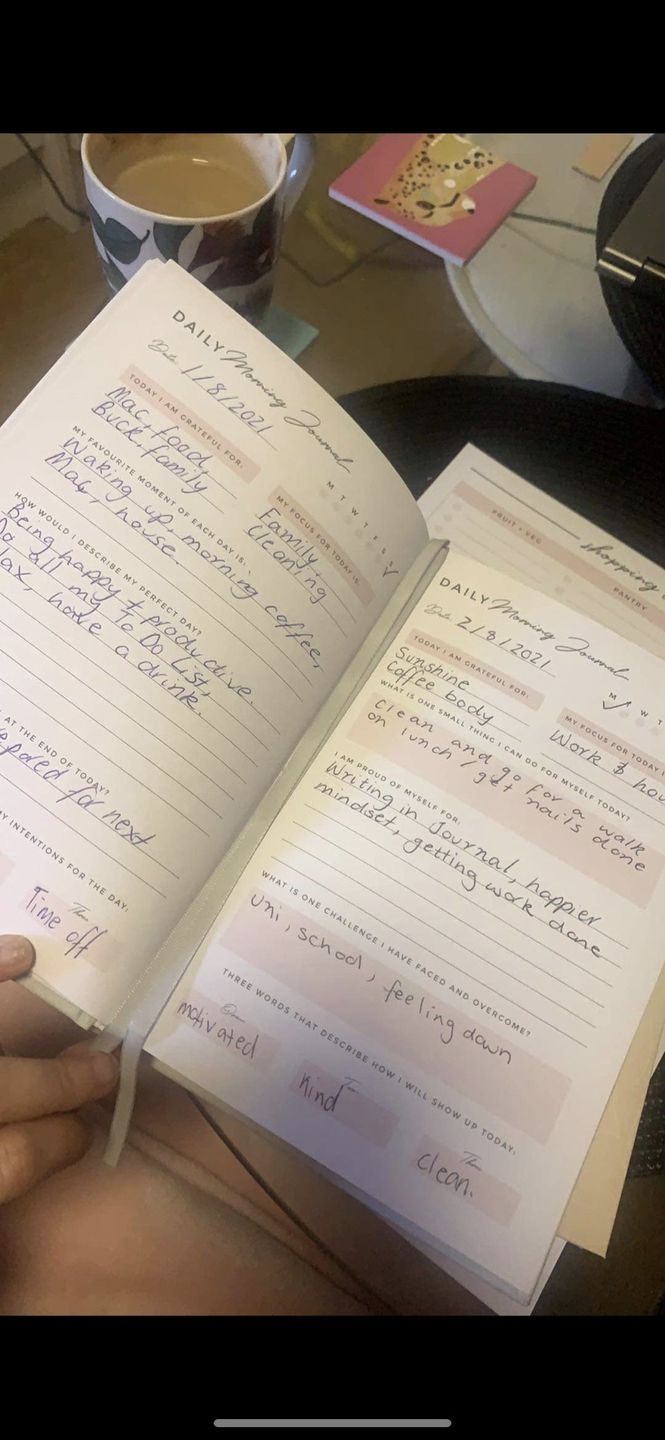 DAILY Morning Journal
Date 1/8/2021
M T W T F S S
TODAY I AM GRATEFUL FOR:
Mac, food,
Buck Family
MY FOCUS FOR TODAY IS:
Family.
Cleaning
MY FAVOURITE MOMENT OF EACH DAY IS:
Waking up, morning coffee,
Mac, house.
HOW WOULD I DESCRIBE MY PERFECT DAY?
Being happy + productive.
Do all my To Do List,
lax, have a drink.
AT THE END OF TODAY?
for next
INTENTIONS FOR THE DAY:
Three
Time off
FRUIT + VEG
shopping
PANTRY
DAILY Morning Journal
Date 2/8/2021
M T W T
TODAY I AM GRATEFUL FOR:
Sunshine
Coffee body
MY FOCUS FOR TODAY
Work &
WHAT IS ONE SMALL THING I CAN DO FOR MYSELF TODAY?
clean and go for a walk
on lunch, get nails done
I AM PROUD OF MYSELF FOR:
Writing in Journal, happier
mindset, getting work done
WHAT IS ONE CHALLENGE I HAVE FACED AND OVERCOME?
uni, school, feeling down
THREE WORDS THAT DESCRIBE HOW I WILL SHOW UP TODAY:
One
motivated
Two
kind
Three
clean.